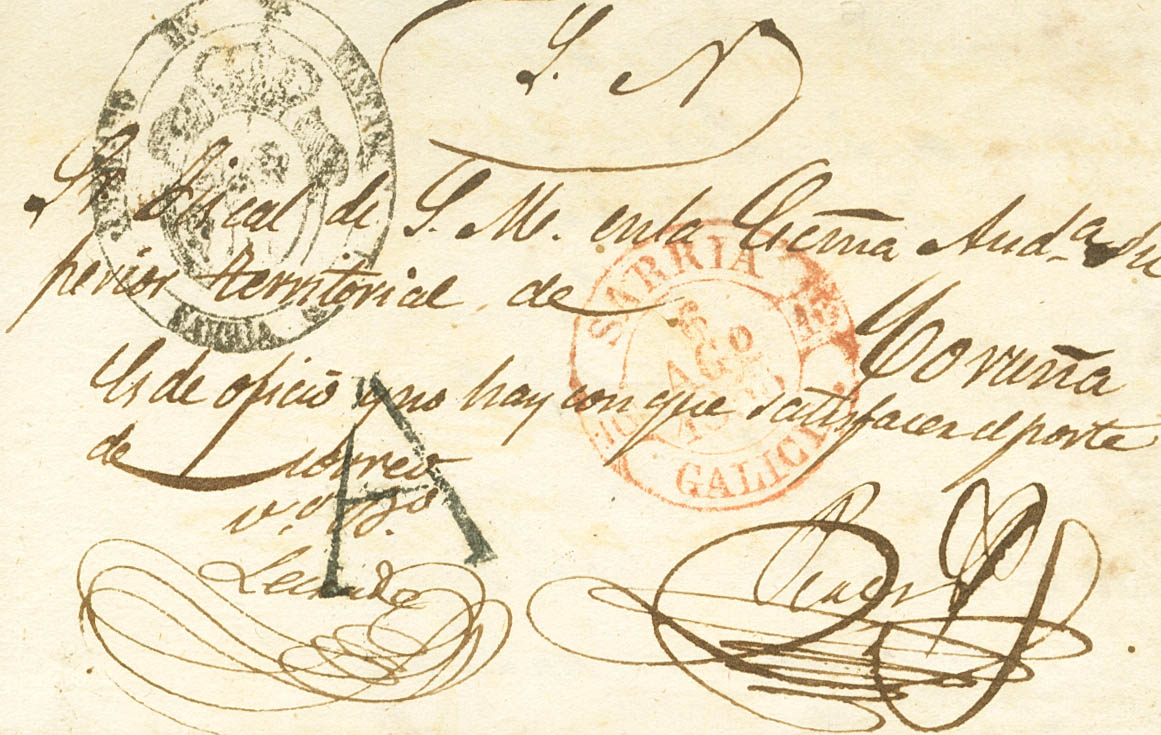 S. N
Sr. Fiscal de S. M. en la Ecma Auda. Su
perior territorial de
Coruña
Es de oficio y no hay con que satisfacer el porte
de Correo
Vo. Bo.
SARRIA
6
AGO
GALICIA
A